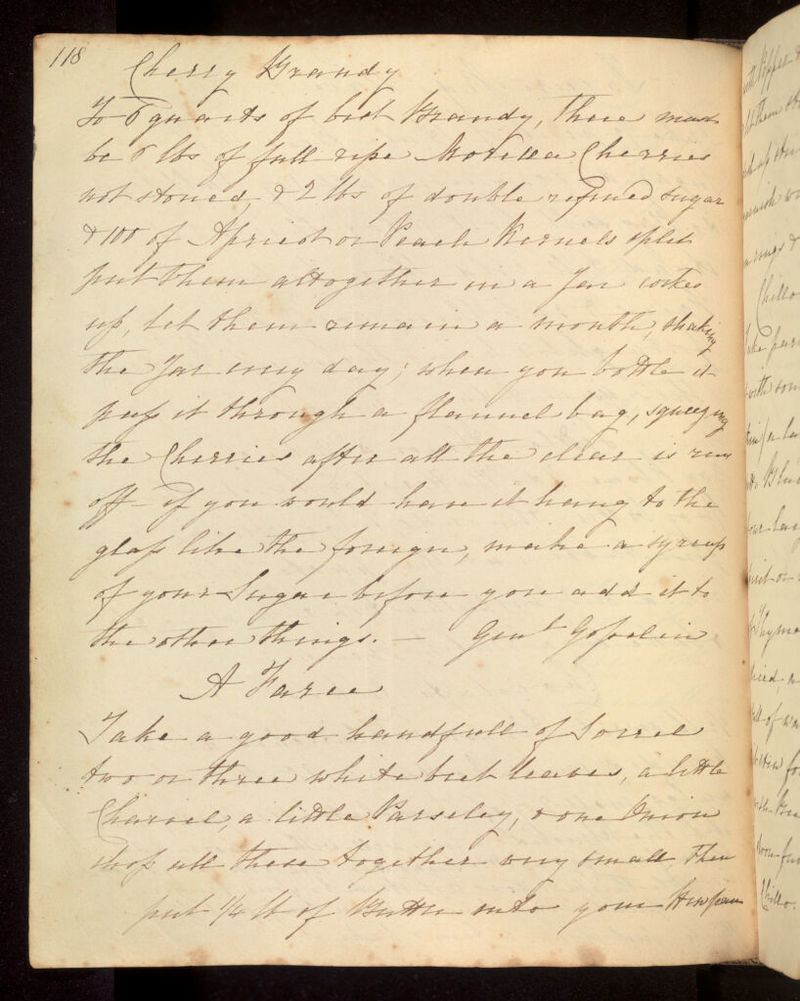 118
Cherry Brandy
To 6 quarts of best Brandy, there must
be 6 lbs of full ripe Morella Cherries
not stoned, & 2 lbs of double refined sugar
& 100 of Apricot or Peach Kernels split
put them altogether in a Jar corke
up, let them remain a month, shaking
the Jar every day; when you bottle it
pass it through a flannel bag, squeezing
the Cherries after all the clear is run
off - if you would have it hang to the
glass like the foreign, make a syrup
of your Sugar before you add it to
the other things. — Genl
A Farce
Take a good handfull of Sorrel
two or three white beet leaves, a little
Charvel, a little Parseley, & one Onion
chop all these together very small, then
put 1/4 lb of Butter into your Stewpan